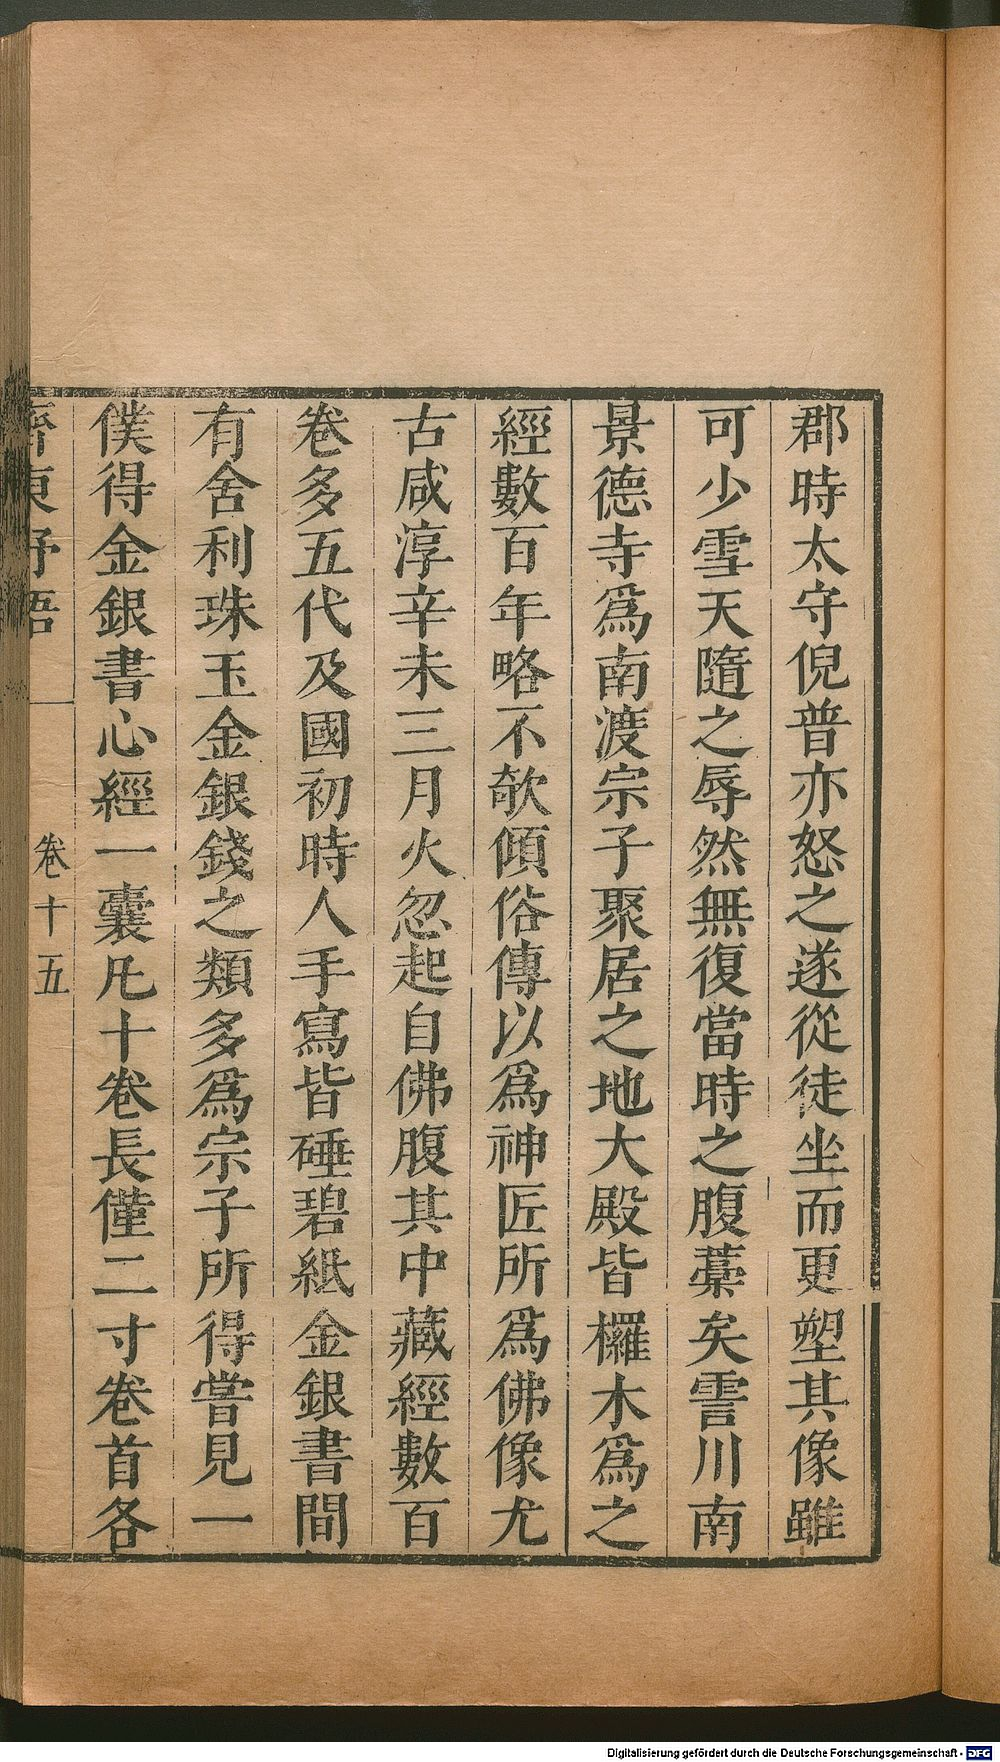 郡時太守倪普亦怒之遂從徒坐而更塑其像雖
可少雪天隨之辱然無復當時之腹藁矣霅川南
景德寺爲南渡宗子聚居之地大殿皆欏木爲之
經數百年略不欹傾俗傳以爲神匠所爲佛像尤
古咸淳辛未三月火忽起自佛腹其中藏經數百
卷多五代及國初時人手寫皆硾碧紙金銀書間
有舍利珠玉金銀錢之類多爲宗子所得嘗見一
僕得金銀書心經一囊凡十卷長僅二寸卷首各
齊東野語 卷十五
Digitalisierung gefördert durch die Deutsche Forschungsgemeinschaft - DFG